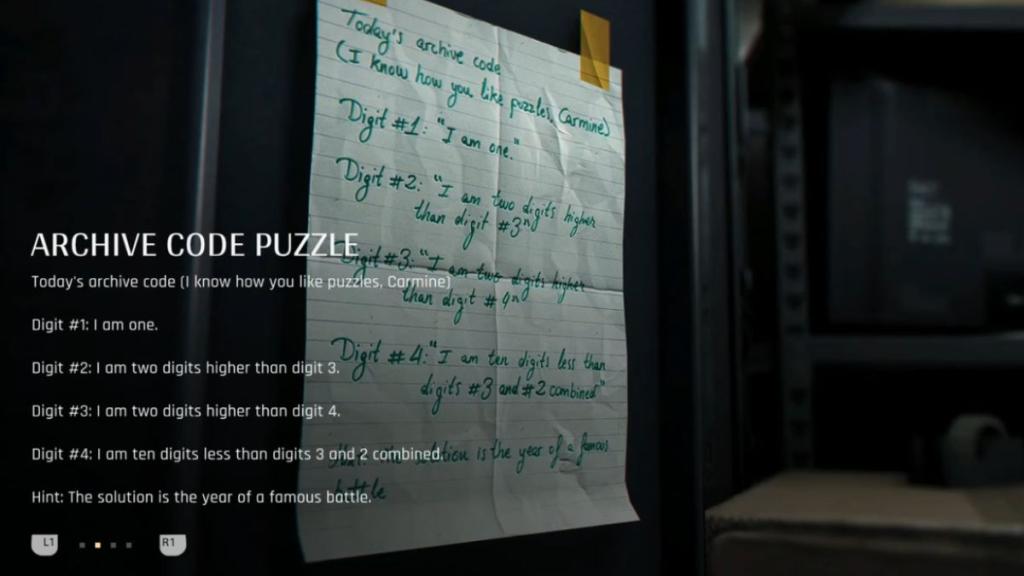 Today's archive code
(I know how you like puzzles, Carmine)
Digit #1: "I am one."
Digit #2: "I am two digits higher
than digit #3"
Digit #3: "I am two digits higher
than digit #4"
Digit #4: "I am ten digits less than
digits #3 and #2 combined"
Hint: The solution is the year of a famous
battle
ARCHIVE CODE PUZZLE
Today's archive code (I know how you like puzzles, Carmine)
Digit #1: I am one.
Digit #2: I am two digits higher than digit 3.
Digit #3: I am two digits higher than digit 4.
Digit #4: I am ten digits less than digits 3 and 2 combined.
Hint: The solution is the year of a famous battle.
L1
R1